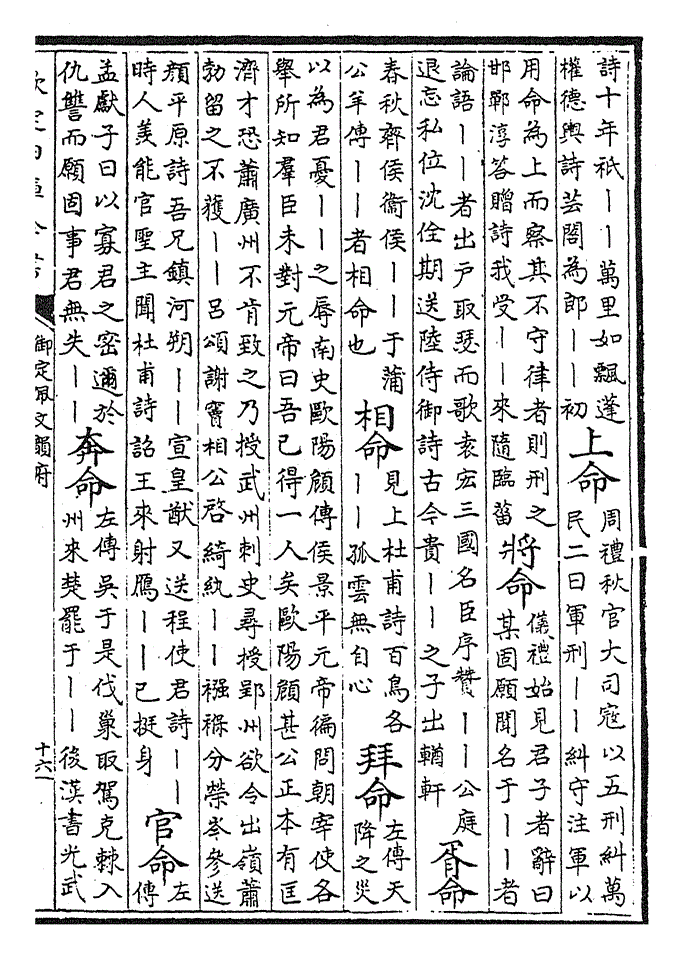 詩十年祇丨丨萬里如飄蓬
權德輿詩芸閣為郎丨丨初
上命
周禮秋官大司寇以五刑糾萬
民二曰軍刑丨丨糾守注軍以
用命為上而察其不守律者則刑之
邯鄲淳答贈詩我受丨丨來隨臨菑
將命
儀禮始見君子者辭曰
某固願聞名于丨丨者
論語丨丨者出戶取瑟而歌袁宏三國名臣序贊丨丨公庭
退忘私位沈佺期送陸侍御詩古今貴丨丨之子出輶軒
胥命
春秋齊侯衞侯丨丨于蒲
公羊傳丨丨者相命也
相命
見上杜甫詩百鳥各
丨丨孤雲無自心
拜命
左傳天
降之災
以為君憂丨丨之辱南史歐陽頠傳侯景平元帝徧問朝宰使各
舉所知羣臣未對元帝曰吾已得一人矣歐陽頠甚公正本有匡
濟才恐蕭廣州不肯致之乃授武州刺史尋授郢州欲令出嶺蕭
勃留之不獲丨丨呂頌謝竇相公啓綺紈丨丨襁褓分榮岑參送
顏平原詩吾兄鎮河朔丨丨宣皇猷又送程使君詩丨丨
時人羨能官聖主聞杜甫詩詔王來射鴈丨丨已挺身
官命
左
傳
孟獻子曰以寡君之密邇於
仇讐而願固事君無失丨丨
奔命
左傳吳于是伐巢取駕克棘入
州來楚罷于丨丨後漢書光武
欽定四庫全書
御定佩文韻府
十六